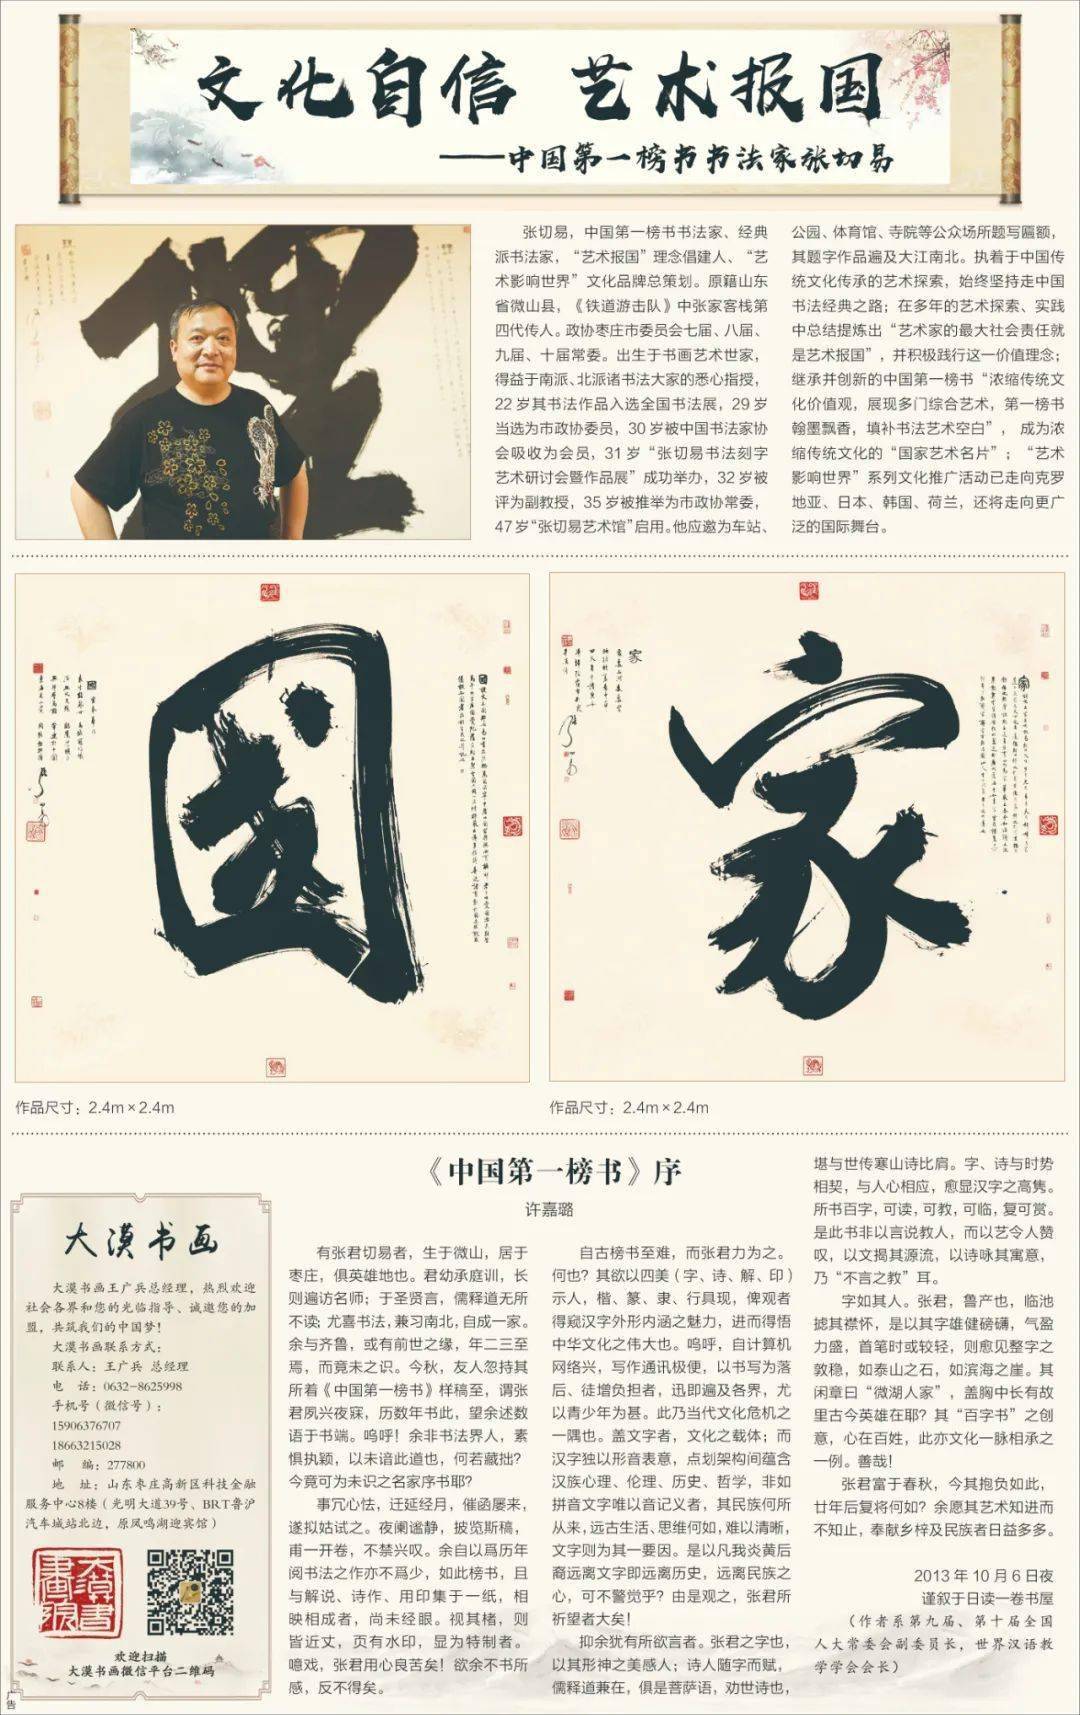 文化自信 艺术报国
——中国第一榜书书法家张切易
张切易，中国第一榜书书法家、经典
派书法家，“艺术报国”理念倡建人、“艺
术影响世界”文化品牌总策划。原籍山东
省微山县，《铁道游击队》中张家客栈第
四代传人。政协枣庄市委员会七届、八届、
九届、十届常委。出生于书画艺术世家，
得益于南派、北派诸书法大家的悉心指授，
22岁其书法作品入选全国书法展，29岁
当选为市政协委员，30岁被中国书法家协
会吸收为会员，31岁“张切易书法刻字
艺术研讨会暨作品展”成功举办，32岁被
评为副教授，35岁被推举为市政协常委，
47岁“张切易艺术馆”启用。他应邀为车站、
公园、体育馆、寺院等公众场所题写匾额，
其题字作品遍及大江南北。执着于中国传
统文化传承的艺术探索，始终坚持走中国
书法经典之路；在多年的艺术探索、实践
中总结提炼出“艺术家的最大社会责任就
是艺术报国”，并积极践行这一价值理念；
继承并创新的中国第一榜书“浓缩传统文
化价值观，展现多门综合艺术，第一榜书
翰墨飘香，填补书法艺术空白”，成为浓
缩传统文化的“国家艺术名片”；“艺术
影响世界”系列文化推广活动已走向克罗
地亚、日本、韩国、荷兰，还将走向更广
泛的国际舞台。
国
家
作品尺寸：2.4m×2.4m
作品尺寸：2.4m×2.4m
大漠书画
大漠书画王广兵总经理，热烈欢迎
社会各界和您的光临指导、诚邀您的加
盟，共筑我们的中国梦！
大漠书画联系方式：
联系人：王广兵 总经理
电 话：0632-8625998
手机号（微信号）：
15906376707
18663215028
邮 编：277800
地 址：山东枣庄高新区科技金融
服务中心8楼（光明大道39号、BRT鲁沪
汽车城站北边，原凤鸣湖迎宾馆）
欢迎扫描
大漠书画微信平台二维码
广告
《中国第一榜书》序
许嘉璐
有张君切易者，生于微山，居于
枣庄，俱英雄地也。君幼承庭训，长
则遍访名师；于圣贤言，儒释道无所
不读，尤喜书法，兼习南北，自成一家。
余与齐鲁，或有前世之缘，年二三至
焉，而竟未之识。今秋，友人忽持其
所着《中国第一榜书》样稿至，谓张
君夙兴夜寐，历数年书此，望余述数
语于书端。呜呼！余非书法界人，素
惧执颖，以未谙此道也，何若藏拙？
今竟可为未识之名家序书耶？
事冗心怯，迁延经月，催函屡来，
遂拟姑试之。夜阑谧静，披览斯稿，
甫一开卷，不禁兴叹。余自以爲历年
阅书法之作亦不爲少，如此榜书，且
与解说、诗作、用印集于一纸，相
映相成者，尚未经眼。视其楮，则
皆近丈，页有水印，显为特制者。
噫戏，张君用心良苦矣！欲余不书所
感，反不得矣。
自古榜书至难，而张君力为之。
何也？其欲以四美（字、诗、解、印）
示人，楷、篆、隶、行具现，俾观者
得窥汉字外形内涵之魅力，进而得悟
中华文化之伟大也。呜呼，自计算机
网络兴，写作通讯极便，以书写为落
后、徒增负担者，迅即遍及各界，尤
以青少年为甚。此乃当代文化危机之
一隅也。盖文字者，文化之载体；而
汉字独以形音表意，点划架构间蕴含
汉族心理、伦理、历史、哲学，非如
拼音文字唯以音记义者，其民族何所
从来，远古生活、思维何如，难以清晰，
文字则为其一要因。是以凡我炎黄后
裔远离文字即远离历史，远离民族之
心，可不警觉乎？由是观之，张君所
祈望者大矣！
抑余犹有所欲言者。张君之字也，
以其形神之美感人；诗人随字而赋，
儒释道兼在，俱是菩萨语，劝世诗也，
堪与世传寒山诗比肩。字、诗与时势
相契，与人心相应，愈显汉字之高隽。
所书百字，可读，可教，可临，复可赏。
是此书非以言说教人，而以艺令人赞
叹，以文揭其源流，以诗咏其寓意，
乃“不言之教”耳。
字如其人。张君，鲁产也，临池
摅其襟怀，是以其字雄健磅礴，气盈
力盛，首笔时或较轻，则愈见整字之
敦稳，如泰山之石，如滨海之崖。其
闲章曰“微湖人家”，盖胸中长有故
里古今英雄在耶？其“百字书”之创
意，心在百姓，此亦文化一脉相承之
一例。善哉！
张君富于春秋，今其抱负如此，
廿年后复将何如？余愿其艺术知进而
不知止，奉献乡梓及民族者日益多多。
2013年10月6日夜
谨叙于日读一卷书屋
（作者系第九届、第十届全国
人大常委会副委员长，世界汉语教
学学会会长）